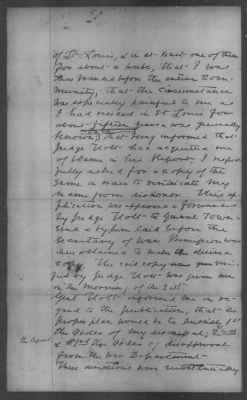 of St Louis, & at least one of them
for about a week, that I was
thus branded before the entire Com-
munity, that the circumstance
was especially painful to me as
I had resided in St Louis for
about fifteen years & was generally
known; that being informed that
Judge Holt had acquitted me
of blame in his Report, I respect
fully asked for a copy of the
same as a means to vindicate my
name from dishonor. This ap
plication was approved & forwarded
by Judge Holt to General Town-
send & by him laid before the
Secretary of War. Permission was
then obtained to make the desired
copy. The said copy was
by Judge Holt was given me
on the morning of the 20th.
Genl Holt informed me in re-
gard to the publication, that the
proper plan would be to publish, 1st
the Order of my dismissal, 2nd
& 3rd the Order of disapproval
from the War Department.
These directions were substantially
the Report